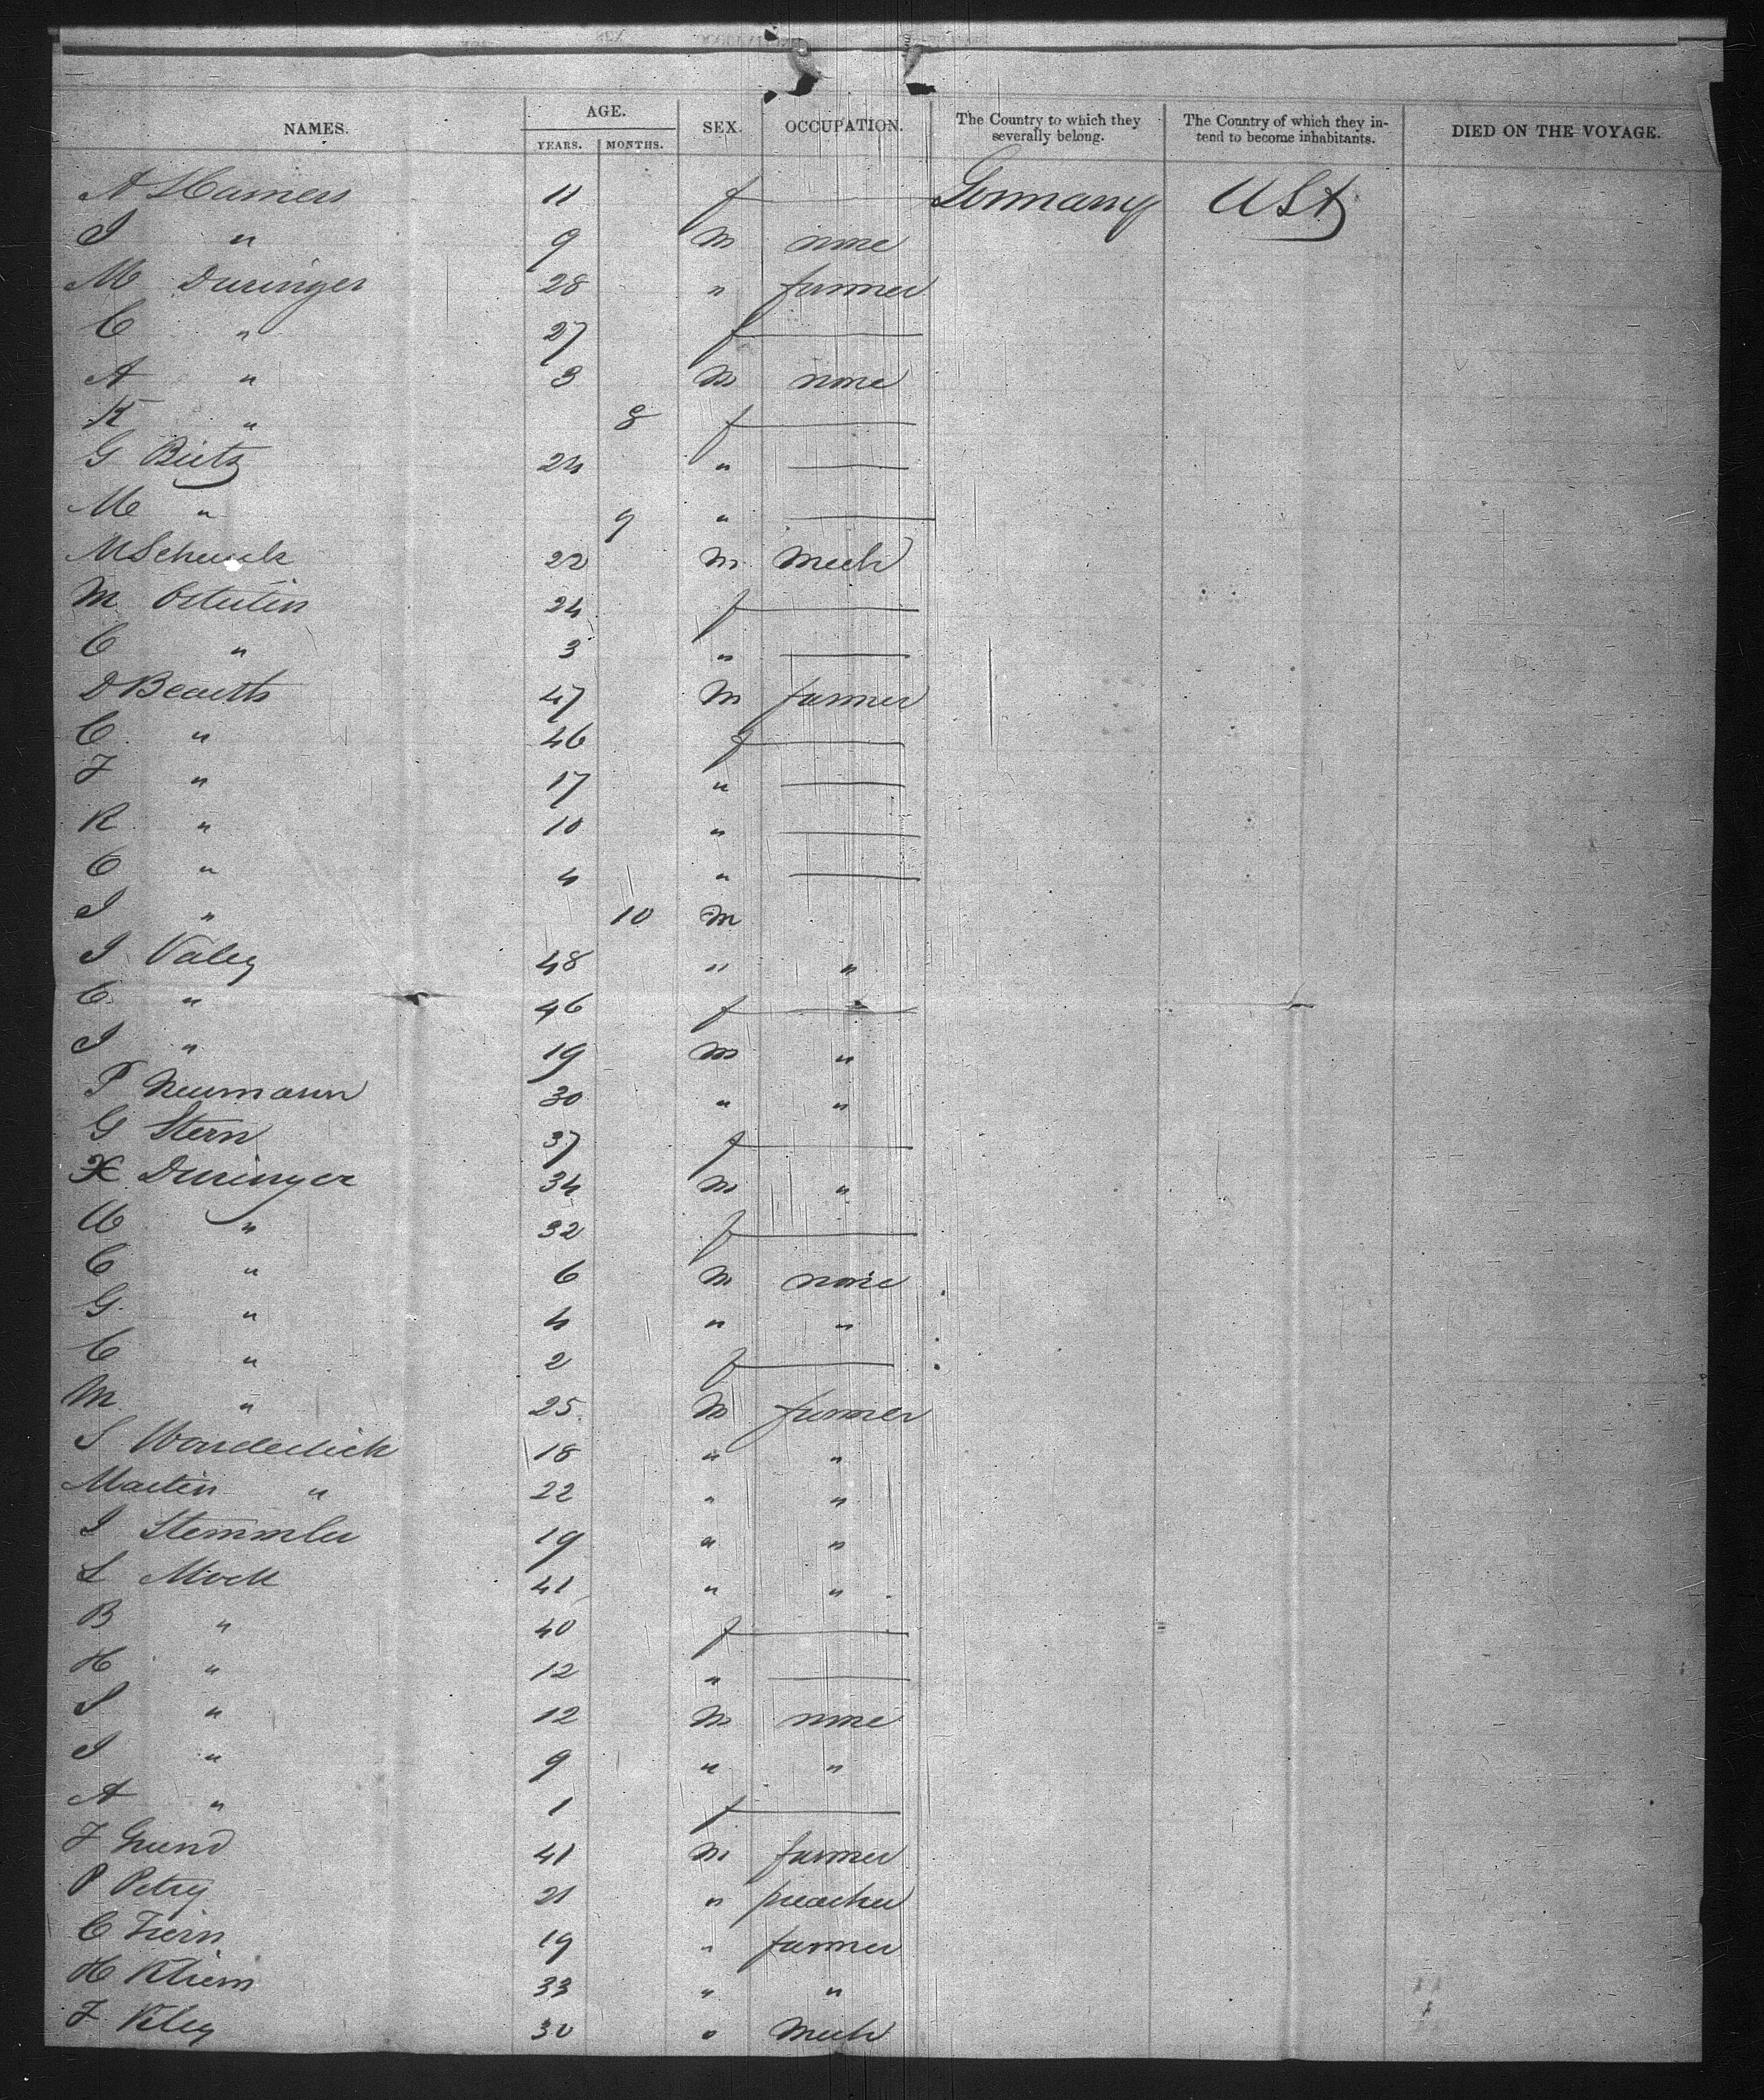 NAMES. AGE. SEX. OCCUPATION. The Country to which they severally belong. The Conntry of which they intend to become inhabitants. DIED ON THE VOYAGE.
YEARS. MONTHS.
A 11 f — Germany USA
J " 9 m none
M Duringer 28 " farmer
C " 27 f —
A " 3 m none
K " 8 f —
G Bietz 24 " —
M " 9 " —
M Schenck 22 m Mech
M 24 f —
C " 3 " —
D 47 m farmer
C " 46 f —
F " 17 " —
K " 10 " —
C " 4 " —
J " 10 m
J Valey 48 " "
C " 46 f —
J " 19 m "
P Neumann 30 " "
G Stern 37 f —
X Duringer 34 m "
M " 32 f —
C " 6 m none
G " 4 " "
C " 2 f —
M " 25 m farmer
S Wonderlich 18 " "
Martin " 22 " "
J Stemmler 19 " "
L Mock 41 " "
B " 40 f —
H " 12 " —
S " 12 m none
J " 9 " "
A " 1 f —
F Grund 41 m farmer
P Petry 21 " preacher
C 19 " farmer
H Kliem 33 " "
F Kley 30 " Mech